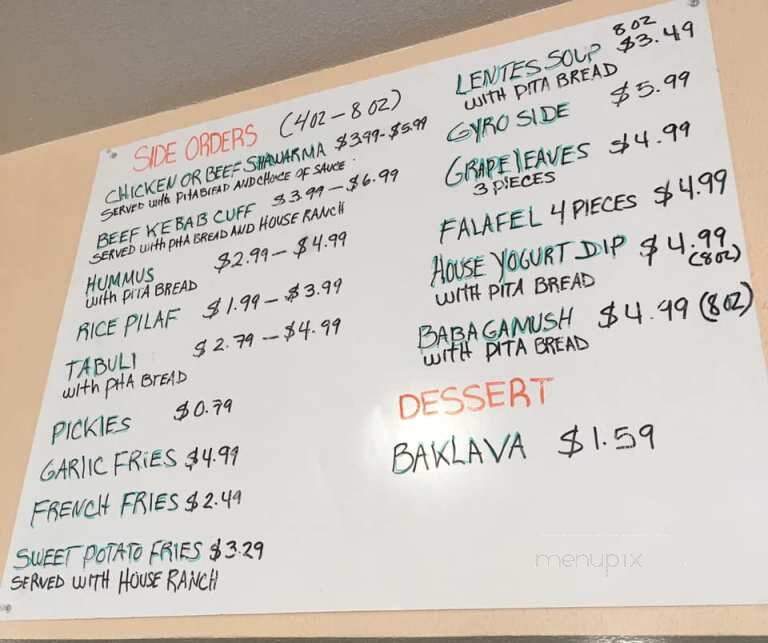 SIDE ORDERS (4OZ-8OZ)
CHICKEN OR BEEF SHAWARMA $3.99-$5.99
SERVED with PITA BREAD AND CHOICE OF SAUCE.
BEEF KEBAB CUFF $3.99-$6.99
SERVED with PITA BREAD AND HOUSE RANCH
HUMMUS $2.99-$4.99
with PITA BREAD
RICE PILAF $1.99-$3.99
TABULI $2.79-$4.99
with PITA BREAD
PICKlES $0.79
GARlIC FRiES $4.99
FRENCH FRIES $2.49
SWEET POTATO FRIES $3.29
SERVED WITH HOUSE RANCH
LENTES SOUP 8OZ $3.49
WITH PITA BREAD
GYRO SIDE $5.99
GRAPE lEAVES $4.99
3 PIECES
FALAFEL 4 PIECES $4.99
HOUSE YOGURT DIP $4.99
(8OZ)
WITH PITA BREAD
BABAGAMUSH $4.99 (8OZ)
WITH PITA BREAD
DESSERT
BAKLAVA $1.59
menupix